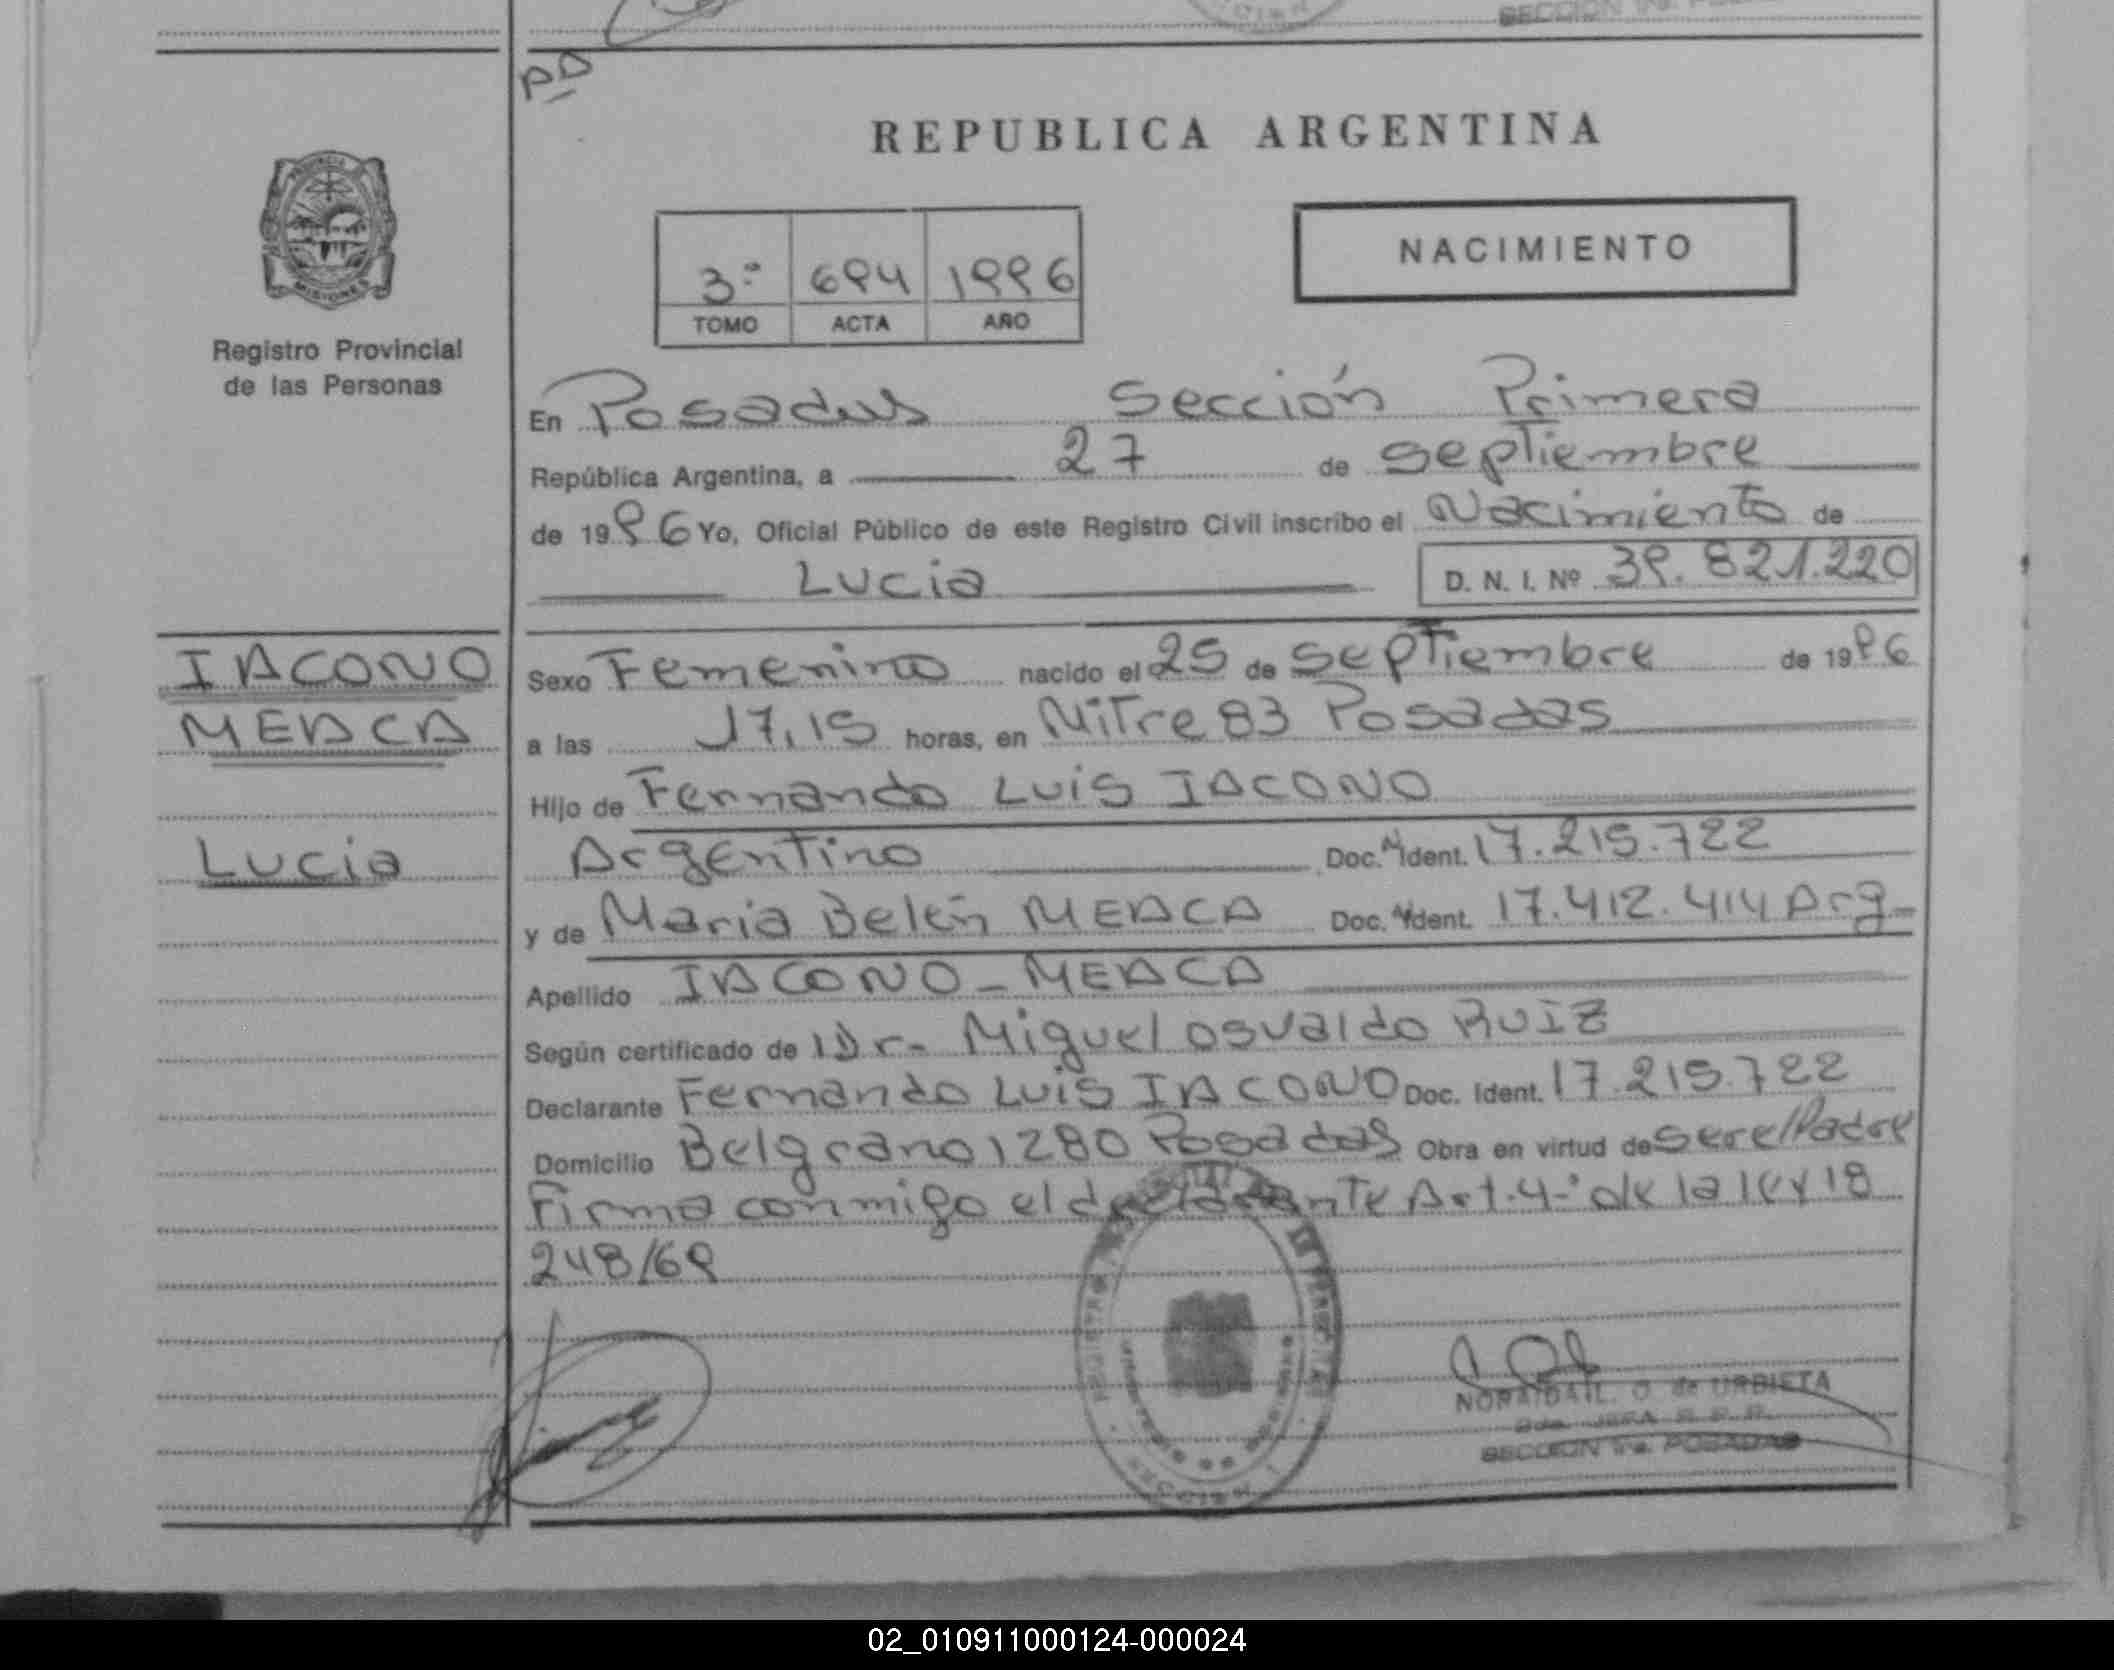 PD
REPUBLICA ARGENTINA
PROVINCIA
MISIONES
Registro Provincial
de las Personas
3º 694 1996
TOMO ACTA AÑO
NACIMIENTO
En Posadas Sección Primera
República Argentina, a 27 de septiembre
de 1996 Yo, Oficial Público de este Registro Civil inscribo el Nacimiento de
Lucia D. N. I. Nº 39.821.220
IACONO
MEACA
Lucia
Sexo Femenino nacido el 25 de septiembre de 1996
a las 17,15 horas, en Mitre 83 Posadas
Hijo de Fernando Luis IACONO
Argentino Doc. N Ident. 17.215.722
y de Maria Belén MEACA Doc. N Ident. 17.412.414 Arg
Apellido IACONO - MEACA
Según certificado de Dr. Miguel Osvaldo RUIZ
Declarante Fernando Luis IACONO Doc. Ident. 17.215.722
Domicilio Belgrano 1280 Posadas Obra en virtud de ser el Padre
Firma conmigo el declarante Art. 4º de la ley 18
248/69
de URBIETA
SECCION 1ra. POSADAS
02_010911000124-000024